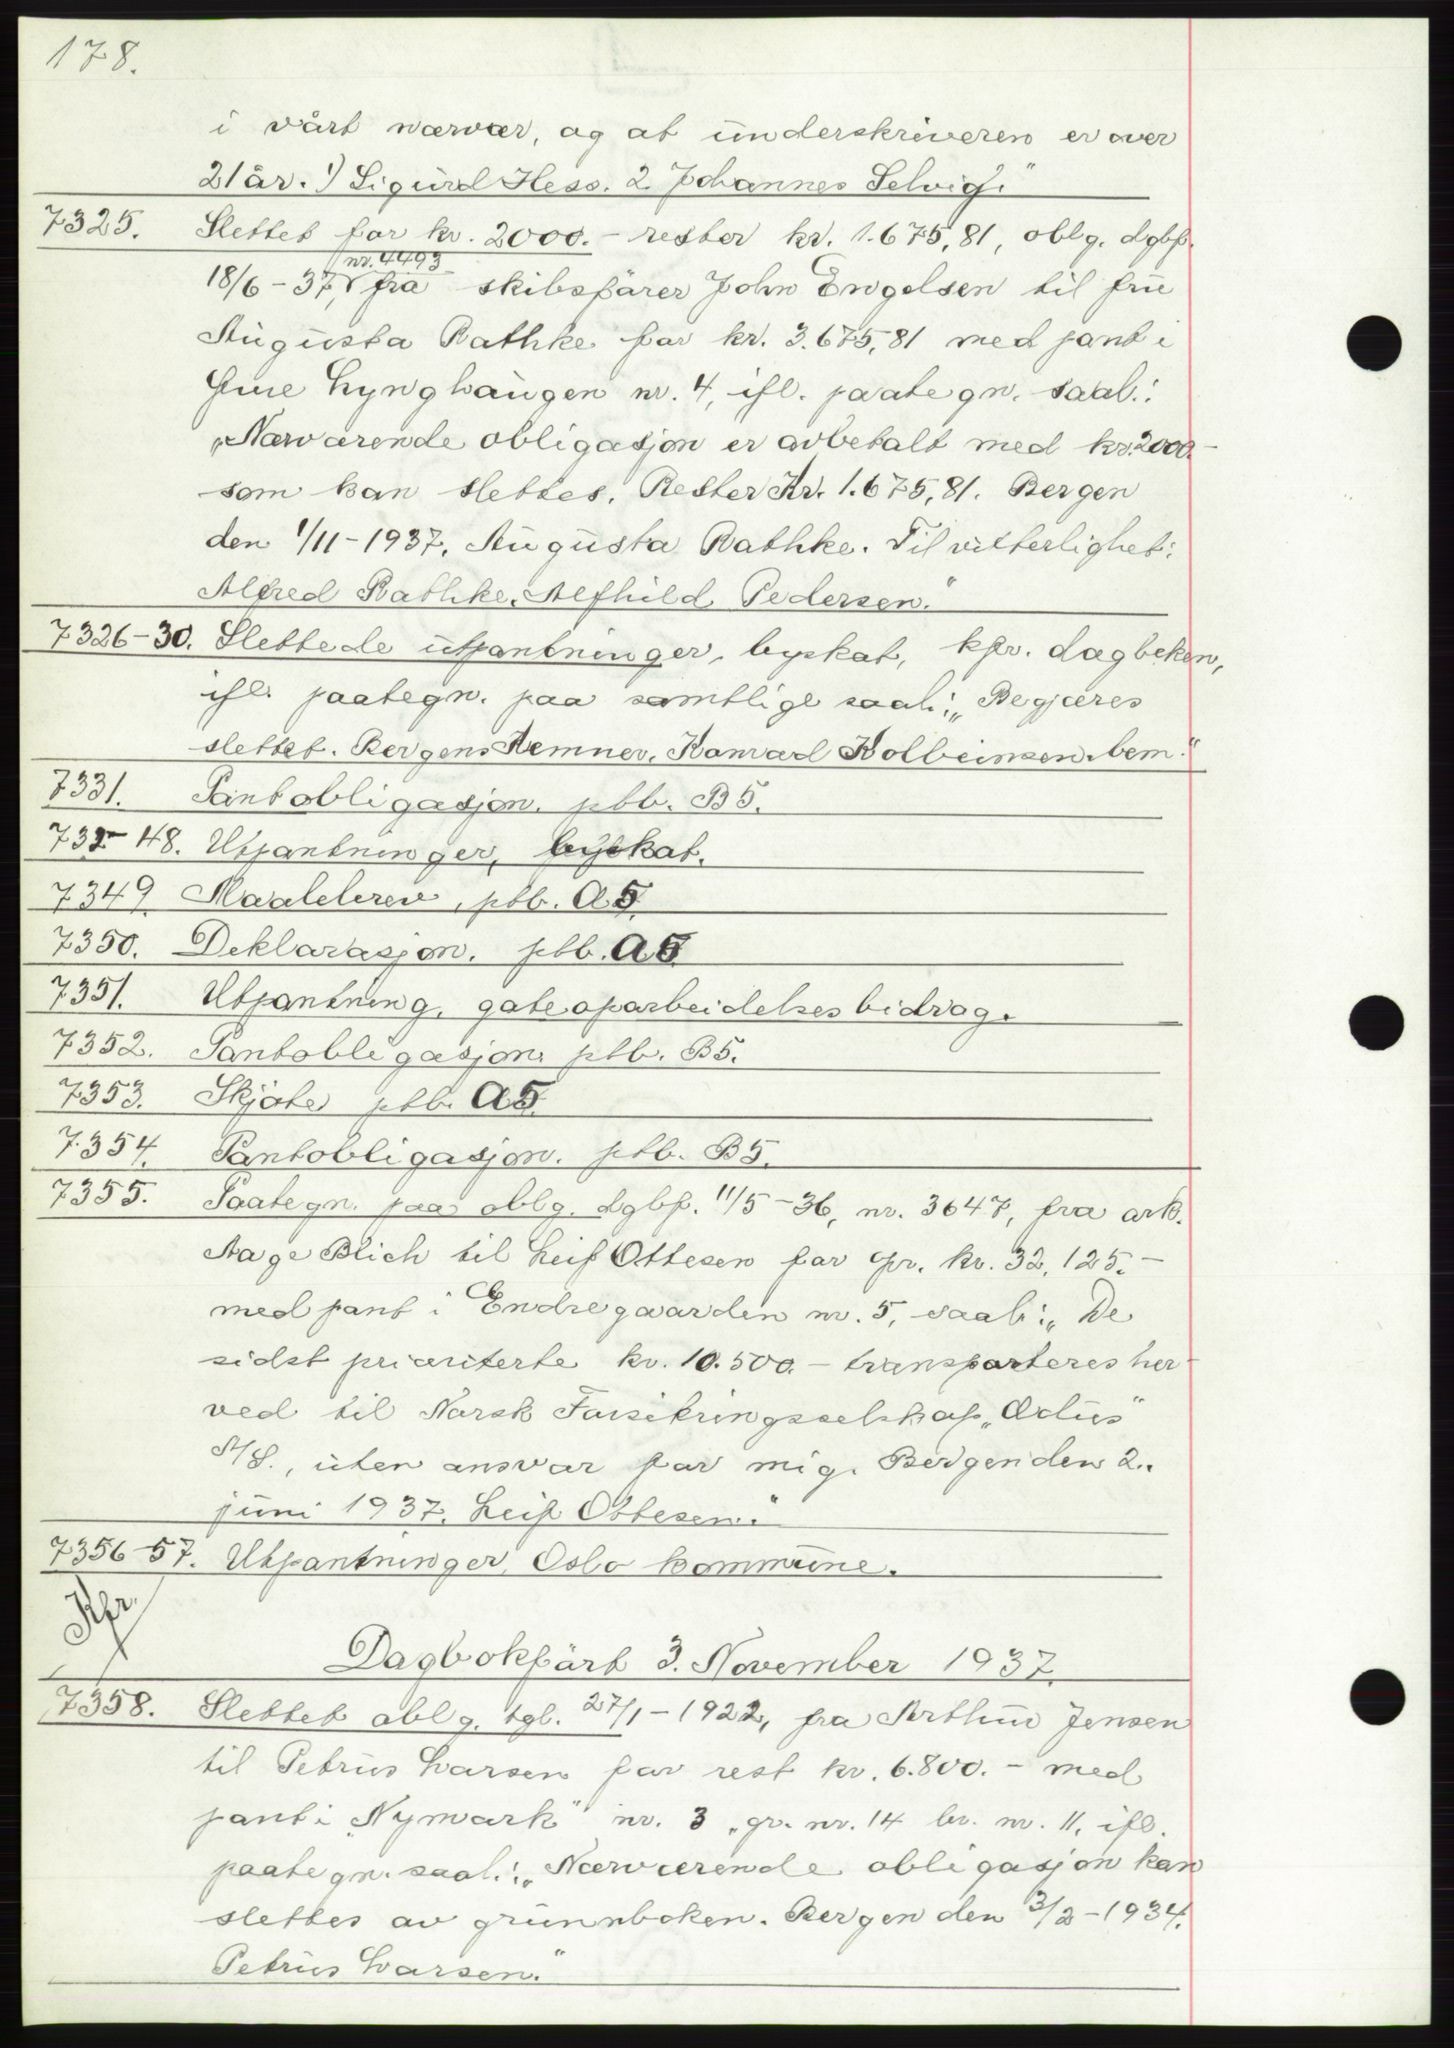 178.
i vårt nærvær, og at underskriveren er over
21 år. 1) Sigurd Hess. 2 Johannes Selvig."
7325. Slettet for kr. 2000.- rester kr. 1.675,81, oblg. dgbf.
nr. 4493
18/6-37, fra skibsfører John Engelsen til frue
Augusta Rathke for kr. 3.675,81 med pant i
Lynghaugen nr. 4, ifl. paategn. saal.:
"Nærværende obligasjon er avbetalt med kr. 2000.-
som kan slettes. Rester Kr. 1.675,81. Bergen
den 1/11-1937. Augusta Rathke. Til vitterlighet:
Alfred Rathke. Alfhild Pedersen."
7326-30. Slettede utpantninger, byskat, kfr. dagboken,
ifl. paategn. paa samtlige saal.: "Begjæres
slettet. Bergens Kemner. Konrad Kolbeinsen. bem."
7331. Pantobligasjon. ptb. B5.
732-48. Utpantninger, byskat.
7349. Maalebrev, ptb. A5.
7350. Deklarasjon. ptb. A5.
7351. Utpantning, gateoparbeidelsesbidrag.
7352. Pantobligasjon. ptb. B5.
7353. Skjøte ptb. A5.
7354. Pantobligasjon. ptb. B5.
7355. Paategn. paa oblg. dgbf. 11/5-36, nr. 3647, fra ark.
Aage Blich til Leif Ottesen for opr. kr. 32.125.-
med pant i Endregaarden nr. 5, saal.: "De
sidst prioriterte kr. 10.500.- transporteres her-
ved til Norsk Forsikringsselskap "Ædus"
A/S., uten ansvar for mig. Bergen den 2.
juni 1937. Leif Ottesen."
7356-57. Utpantninger, Oslo kommune.
Kfr.
Dagbokført 3. November 1937.
7358. Slettet oblg. tgl. 27/1-1922, fra Arthur Jensen
til Petrus Larsen for rest kr. 6.800.- med
pant i "Nymark" nr. 3, gr. nr. 14 br. nr. 11, ifl.
paategn. saal.: "Nærværende obligasjon kan
slettes av grunnboken. Bergen den 3/2-1934.
Petrus Larsen."